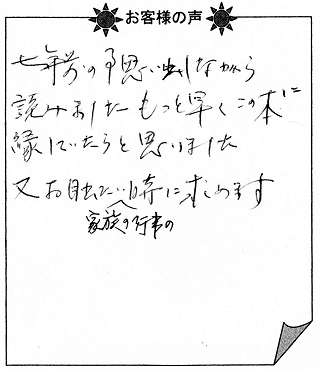 お客様の声
七年前の事思い出しながら
読みました もっと早くこの本に
縁していたらと思いました
又お目出たい時に求めます
家族の行事の